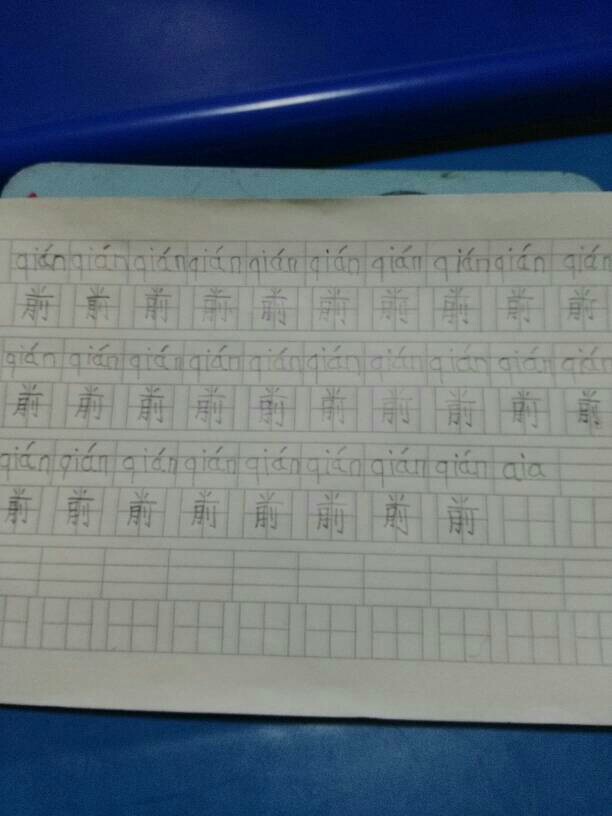 qián qián qián qián qián qián qián qián qián qián
前 前 前 前 前 前 前 前 前 前
qián qián qián qián qián qián qián qián qián qián
前 前 前 前 前 前 前 前 前 前
qián qián qián qián qián qián qián qián qia
前 前 前 前 前 前 前 前